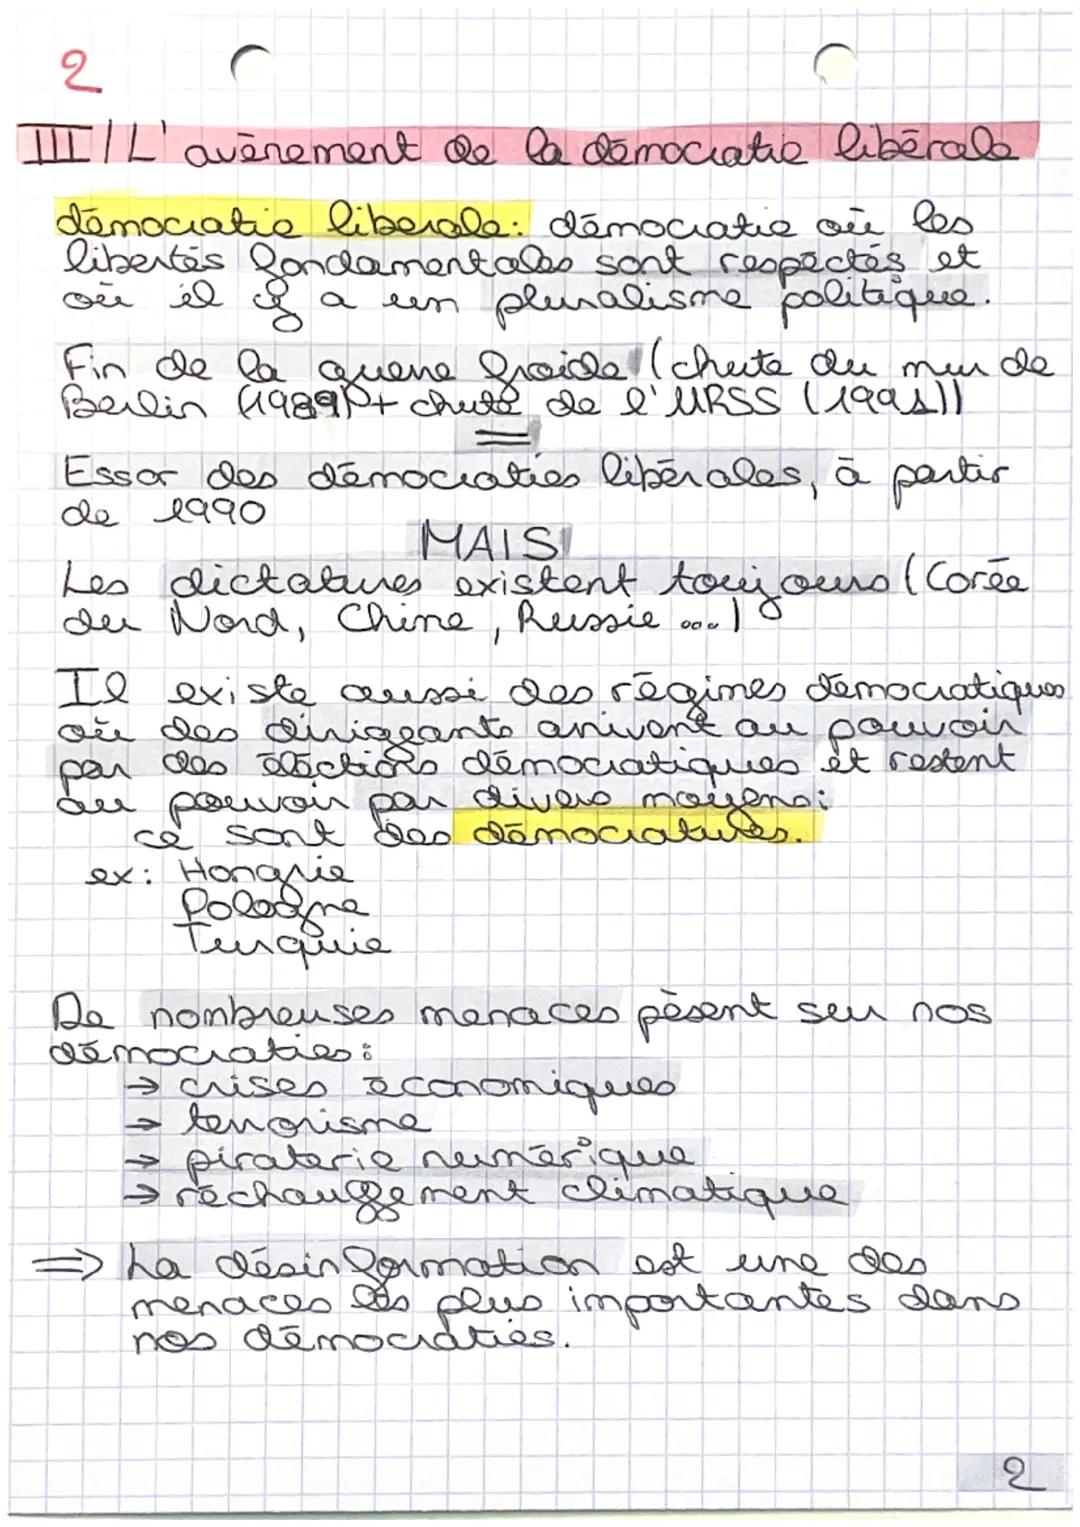 2
III/ L'avènement de la démocratie libérale
démocratie libérale: démocratie où les
libertés fondamentales sont respectés et
où il y a un pluralisme politique.
Fin de la guerre froide (chute du mur de
Berlin (1989) + chute de l'URSS (1991))
=
Essor des démocraties libérales, à partir
de 1990
MAIS
Les dictatures existent toujours (Corée
du Nord, Chine, Russie ...)
Il existe aussi des régimes démocratiques
où des dirigeants arrivent au pouvoir
par des élections démocratiques et restent
au pouvoir par divers moyens:
ce sont des démocratures.
ex: Hongrie
Pologne
Turquie
De nombreuses menaces pèsent sur nos
démocraties:
→ crises économiques
→ terrorisme
→ piraterie numérique
→ réchauffement climatique
⇒ La désinformation est une des
menaces les plus importantes dans
nos démocraties.
2